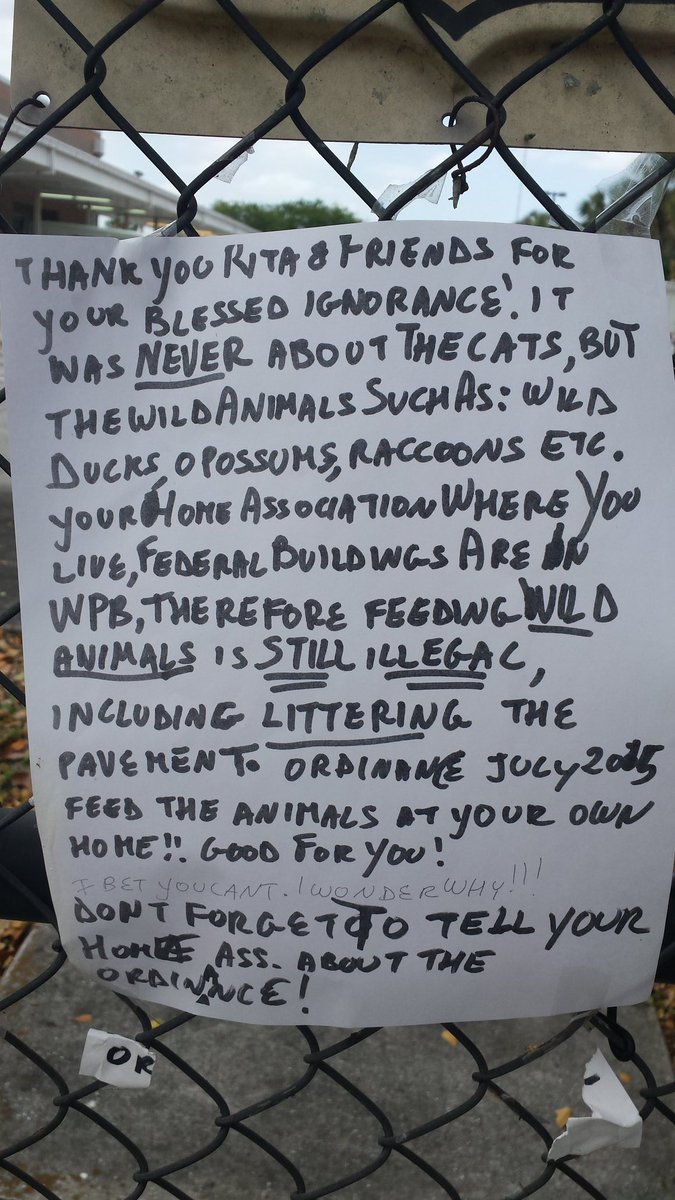 THANK YOU RITA & FRIENDS FOR
YOUR BLESSED IGNORANCE! IT
WAS NEVER ABOUT THE CATS, BUT
THE WILD ANIMALS SUCH AS: WILD
DUCKS, OPOSSUMS, RACCOONS ETC.
YOUR HOME ASSOCIATION WHERE YOU
LIVE, FEDERAL BUILDINGS ARE IN
WPB, THEREFORE FEEDING WILD
ANIMALS IS STILL ILLEGAL,
INCLUDING LITTERING THE
PAVEMENT. ORDINANCE JULY 2015
FEED THE ANIMALS AT YOUR OWN
HOME!! GOOD FOR YOU!
I BET YOU CANT. I WONDER WHY!!!
DONT FORGET TO TELL YOUR
HOME ASS. ABOUT THE
ORDINANCE!
OR